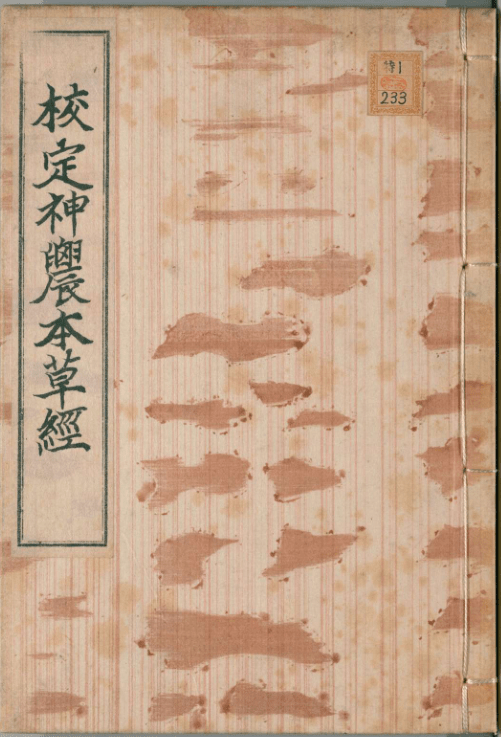 校定神農本草經
特1
233